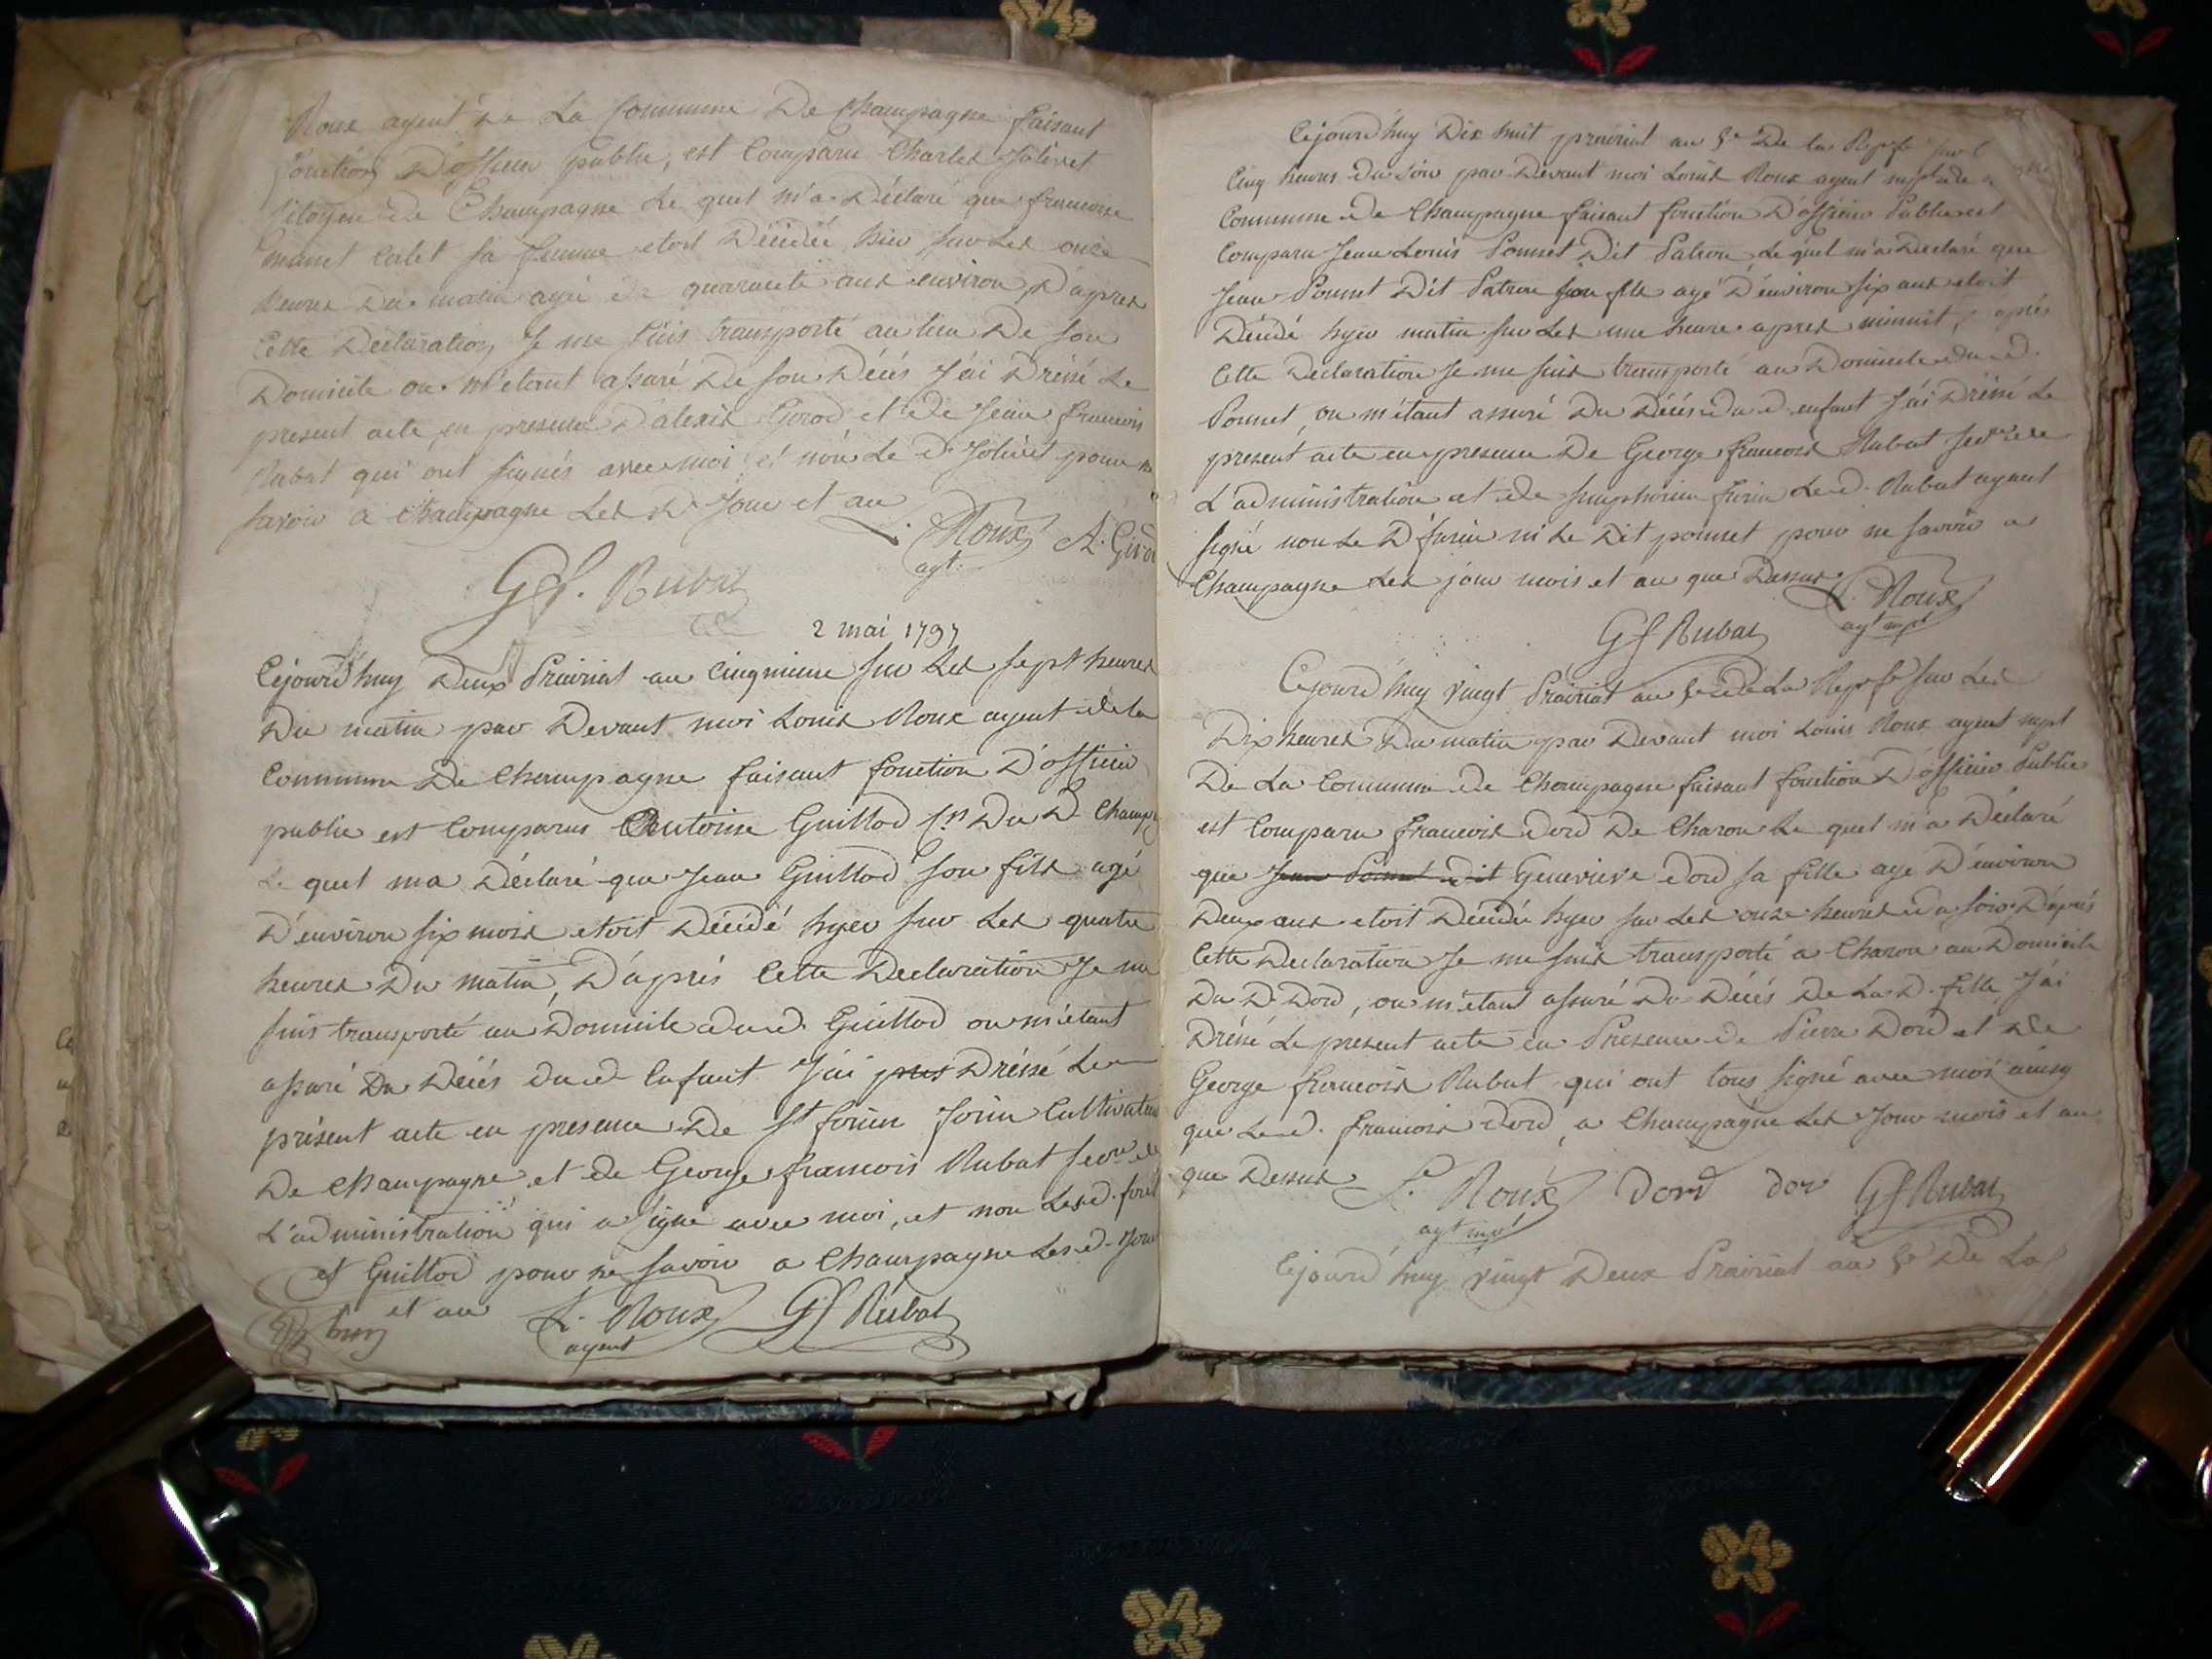 Roux agent de La Commune De Champagne faisant
fonction D'officier public, est Comparu Charles Jolivet
Citoyen de Champagne Le quel m'a Déclaré que francoise
Calet sa femme etoit Décédée hier sur Les onze
heures Du matin agée de quarante ans environ, D'apres
Cette Declaration, Je me suis transporté au lieu De son
Domicile ou m'etant assuré De son Décés J'ai Dréssé Le
present acte en presence D'alexis Girod et De Jean francois
Rubat qui ont signés avec moi et non Le d. Jolivet pour ne
savoir a Champagne Les d. Jour et an
L. Roux
A. Girod
agt.
Gf. Rubat
2 mai 1797
Cejourd'huy Deux Prairial an Cinquieme sur Les sept heures
Du matin par Devant moi Louis Roux agent de la
Commune De Champagne faisant fonction D'officier
public est Comparus Antoine Guillod Cn Du D. Champ
Le quel ma Déclaré que Jean Guillod son fils agé
D'environ six mois etoit Décédé hyer sur Les quatre
heures Du matin, D'aprés Cette Declaration Je me
suis transporté au Domicile du d. Guillod ou m'étant
assuré Du Décés du d. Enfant J'ai pres Dréssé Le
présent acte en presence De St forin forin Cultivateur
De Champagne et de George francois Rubat secre de
L'administration qui a signé avec moi, et non Les d. forin
et Guillod pour ne savoir a Champagne Les d. Jour
et an
L. Roux
Gf Rubat
agent
Cejourd'huy Dix huit prairial an 5e De la Rep. f. sur L
Cinq heures Du soir par Devant moi Louis Roux agent mpl de
Commune De Champagne faisant fonction D'officier Public est
Comparu Jean Louis Ponnet Dit Patron, Le quel m'a Declaré que
Jean Ponnet Dit Patron son fils agé D'environ six ans etoit
Décédé hyer matin sur Les une heure apres minuit, aprés
Cette Declaration Je me suis transporté au Domicile du d.
Ponnet, ou m'étant assuré Du Décés du d. enfant J'ai Dréssé Le
present acte en presence De George francois Rubat secre de
L'administration et de simphorien forin Le d. Rubat ayant
signé non Le D. forin ni Le Dit ponnet pour ne savoir a
Champagne Les jour mois et an que Dessus
L. Roux
agt mpl
Gf Rubat
Cejourd'huy vingt Prairial an 5e de La Rep. f. sur Les
Dix heures Du matin par Devant moi Louis Roux agent mpl
De La Commune De Champagne faisant fonction D'officier Public
est Comparu francois dord De Charon Le quel m'a Déclaré
que Jean Ponnet dit Genevieve dord sa fille agé D'environ
Deux ans etoit Décédée hyer sur Les onze heures du soir. D'aprés
Cette Declaration Je me suis transporté a Charon au Domicile
Du D. Dord, ou m'étant assuré Du Décés De La D. fille J'ai
Dréssé Le present acte en Presence de Pierre Dord et De
George francois Rubat qui ont tous signé avec moi ainsy
que Le d. francois dord, a Champagne Les Jour mois et an
que Dessus
L. Roux
dord
dor
Gf Rubat
agt mpl
Cejourd'huy vingt Deux Prairial an 5e De La